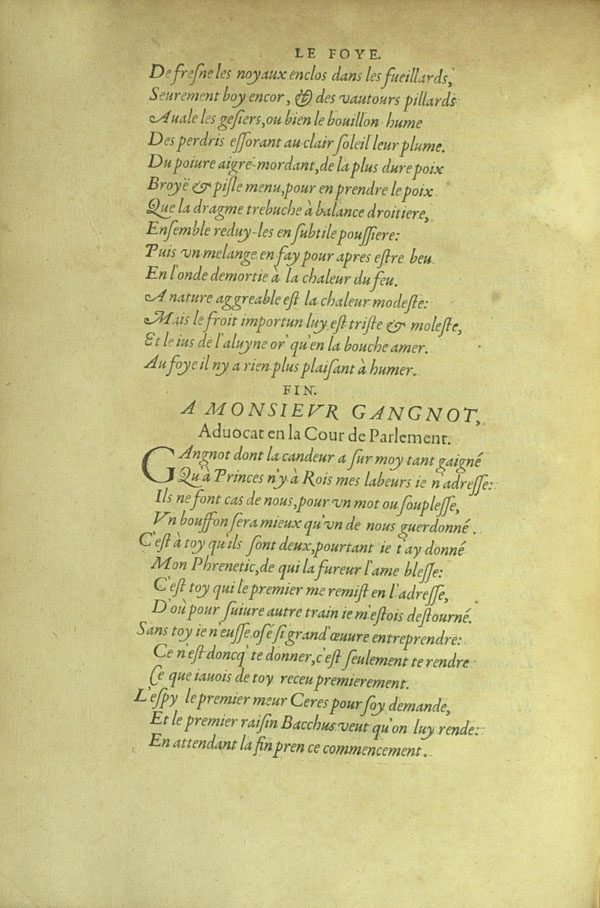 LE FOYE.
De fresne les noyaux enclos dans les fueillards,
Seurement boy encor, & des vautours pillards
Auale les gesiers, ou bien le bouillon hume
Des perdris essorant au clair soleil leur plume.
Du poiure aigre-mordant, de la plus dure poix
Broyë & piste menu, pour en prendre le poix
Que la dragme trebuche à balance droitiere,
Ensemble reduy-les en subtile poussiere:
Puis vn melange en fay pour apres estre beu
En l'onde demortie à la chaleur du feu.
A nature aggreable est la chaleur modeste:
Mais le froit importun luy est triste & moleste,
Et le ius de l'aluyne or' qu'en la bouche amer.
Au foye il ny a rien plus plaisant à humer.
FIN.
A MONSIEVR GANGNOT,
Aduocat en la Cour de Parlement.
GAngnot dont la candeur a sur moy tant gaigné
Qu'à Princes n'y à Rois mes labeurs ie n'adresse:
Ils ne font cas de nous, pour vn mot ou souplesse,
Vn bouffon sera mieux qu'vn de nous guerdonné.
C'est à toy qu'ils sont deux, pourtant ie t'ay donné
Mon Phrenetic, de qui la fureur l'ame blesse:
C'est toy qui le premier me remist en l'adresse,
D'où pour suiure autre train ie m'estois destourné.
Sans toy ie n'eusse osé si grand' œuure entreprendre:
Ce n'est doncq' te donner, c'est seulement te rendre
Ce que iauois de toy receu premierement.
L'espy le premier meur Ceres pour soy demande,
Et le premier raisin Bacchus veut qu'on luy rende:
En attendant la fin pren ce commencement.